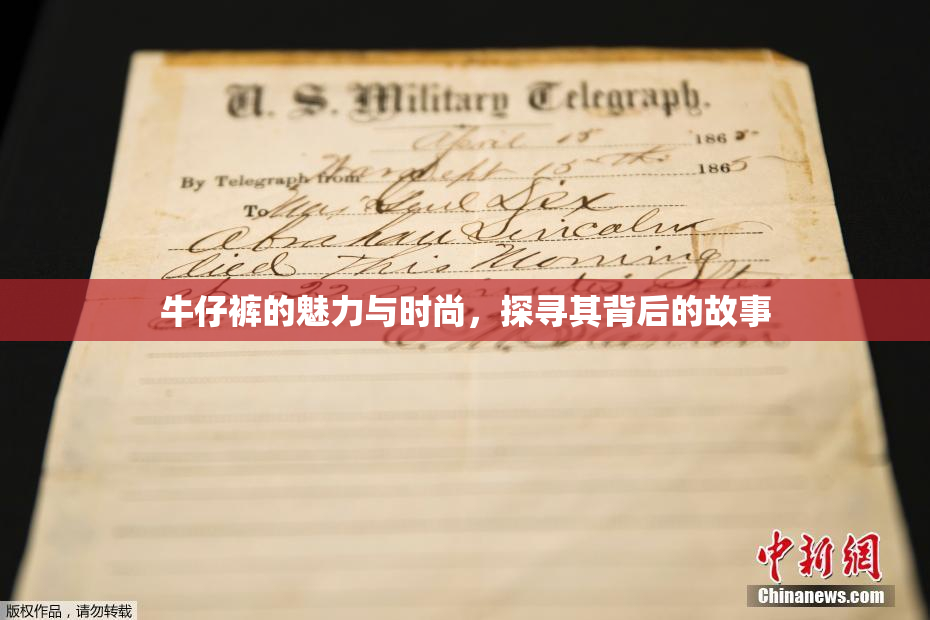 U. S. Military Telegraph.
April 15 1865
By Telegraph from War Dept 15th 1865
To Maj Genl Dix
Abraham Lincoln
died This Morning
at 22 minutes after
牛仔裤的魅力与时尚，探寻其背后的故事
E. M. Stanton
中新网
Chinanews.com
版权作品，请勿转载